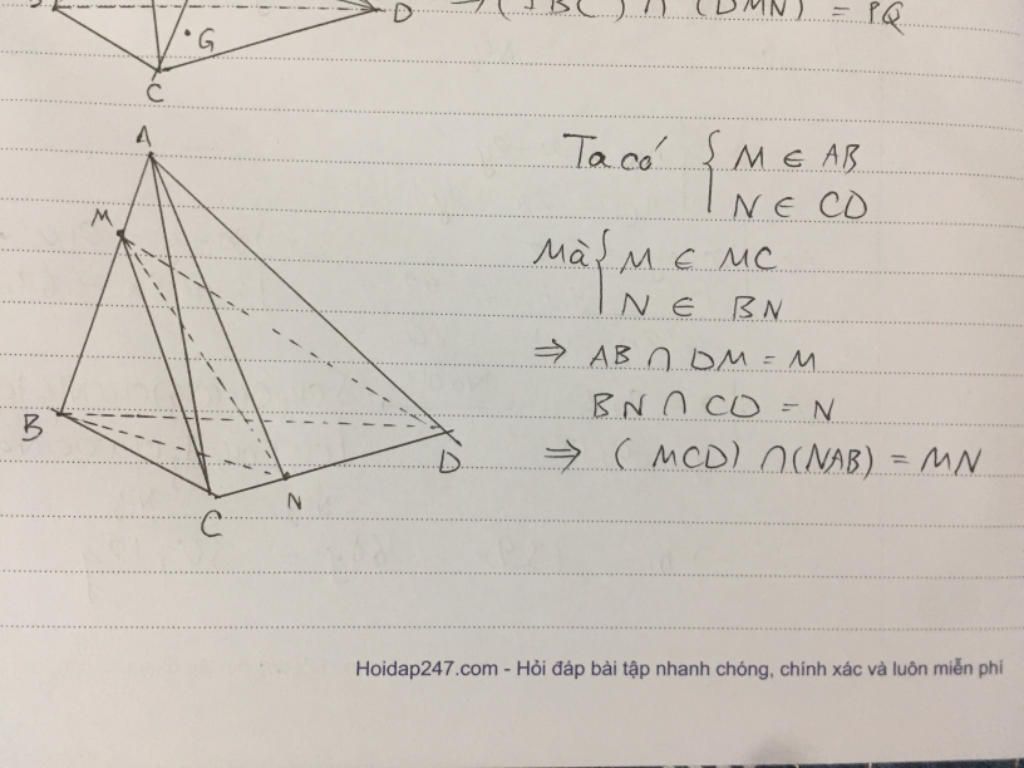 D ⇒ (IBC) ∩ (DMN) = PQ
G
C
A
Ta có { M ∈ AB
N ∈ CD
M
Mà { M ∈ MC
N ∈ BN
⇒ AB ∩ DM = M
B
BN ∩ CD = N
D
⇒ (MCD) ∩ (NAB) = MN
N
C
Hoidap247.com - Hỏi đáp bài tập nhanh chóng, chính xác và luôn miễn phí